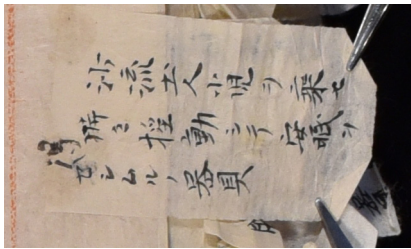 沙流土人小児ヲ乗セ
時々揺動シテ安眠ヲ
得セシムルノ器具